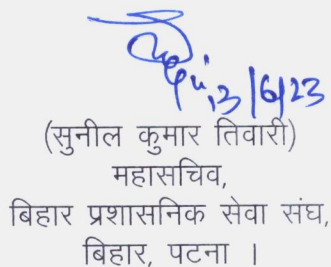 13/6/23
(सुनील कुमार तिवारी)
महासचिव,
बिहार प्रशासनिक सेवा संघ,
बिहार, पटना ।